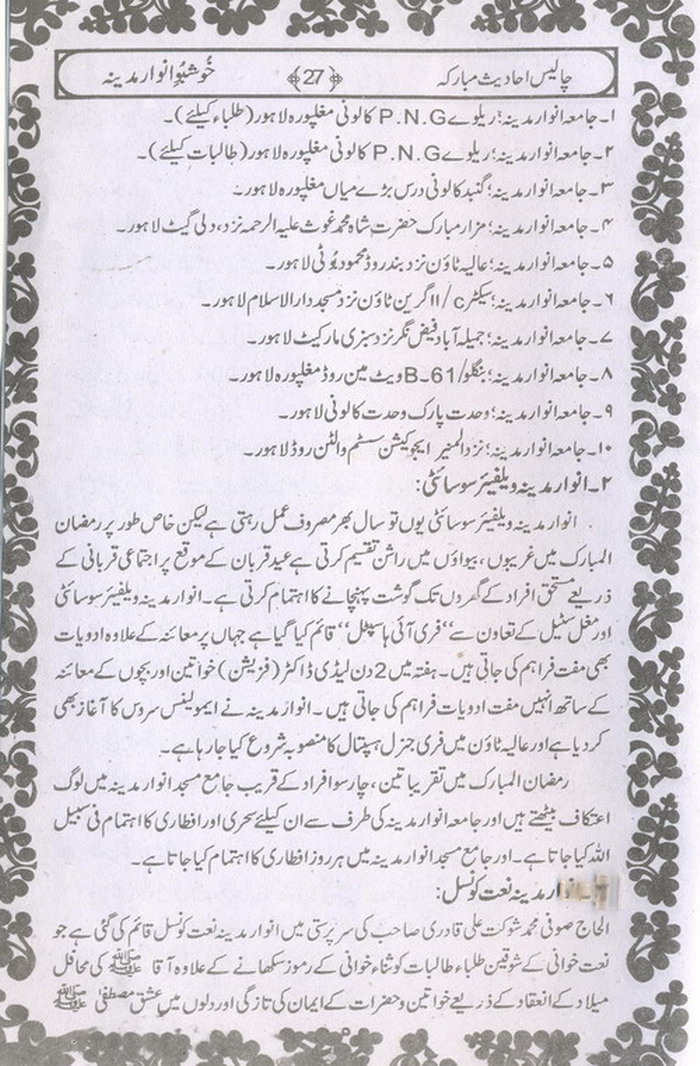 چالیس احادیث مبارکہ ﴿27﴾ خُوشبُوِ انوار مدینہ
۱۔ جامعہ انوار مدینہ؛ ریلوے P.N.G کالونی مغلپورہ لاہور (طلباء کیلئے)۔
۲۔ جامعہ انوار مدینہ؛ ریلوے P.N.G کالونی مغلپورہ لاہور (طالبات کیلئے)۔
۳۔ جامعہ انوار مدینہ؛ گنبد کالونی درس بڑے میاں مغلپورہ لاہور۔
۴۔ جامعہ انوار مدینہ؛ مزار مبارک حضرت شاہ محمد غوث علیہ الرحمہ نزد، دلی گیٹ لاہور۔
۵۔ جامعہ انوار مدینہ؛ عالیہ ٹاؤن نزد بند روڈ محمود بُوٹی لاہور۔
۶۔ جامعہ انوار مدینہ؛ سیکٹر c/ll گرین ٹاؤن نزد مسجد دار الاسلام لاہور۔
۷۔ جامعہ انوار مدینہ؛ جمیلہ آباد فیض نگر نزد سبزی مارکیٹ لاہور۔
۸۔ جامعہ انوار مدینہ؛ بنگلو/61۔B ویٹ مین روڈ مغلپورہ لاہور۔
۹۔ جامعہ انوار مدینہ؛ وحدت پارک وحدت کالونی لاہور۔
۱۰۔ جامعہ انوار مدینہ؛ نزد المنیر ایجوکیشن سسٹم والٹن روڈ لاہور۔
۲۔ انوار مدینہ ویلفیئر سوسائٹی:
انوار مدینہ ویلفیئر سوسائٹی یوں تو سال بھر مصروف عمل رہتی ہے لیکن خاص طور پر رمضان
المبارک میں غریبوں، بیواؤں میں راشن تقسیم کرتی ہے عید قربان کے موقع پر اجتماعی قربانی کے
ذریعے مستحق افراد کے گھروں تک گوشت پہنچانے کا اہتمام کرتی ہے۔ انوار مدینہ ویلفیئر سوسائٹی
اور مغل سٹیل کے تعاون سے “فری آئی ہاسپٹل” قائم کیا گیا ہے جہاں پر معائنہ کے علاوہ ادویات
بھی مفت فراہم کی جاتی ہیں۔ ہفتہ میں 2 دن لیڈی ڈاکٹر (فزیشن) خواتین اور بچوں کے معائنہ
کے ساتھ انہیں مفت ادویات فراہم کی جاتی ہیں۔ انوار مدینہ نے ایمبولینس سروس کا آغاز بھی
کر دیا ہے اور عالیہ ٹاؤن میں فری جنرل ہسپتال کا منصوبہ شروع کیا جا رہا ہے۔
رمضان المبارک میں تقریبا تین، چار سو افراد کے قریب جامع مسجد انوار مدینہ میں لوگ
اعتکاف بیٹھتے ہیں اور جامعہ انوار مدینہ کی طرف سے ان کیلئے سحری اور افطاری کا اہتمام فی سبیل
اللہ کیا جاتا ہے۔ اور جامع مسجد انوار مدینہ میں ہر روز افطاری کا اہتمام کیا جاتا ہے۔
مدینہ نعت کونسل:
الحاج صوفی محمد شوکت علی قادری صاحب کی سرپرستی میں انوار مدینہ نعت کونسل قائم کی گئی ہے جو
نعت خوانی کے شوقین طلباء طالبات کو ثناء خوانی کے رموز سکھانے کے علاوہ آقا ﷺ کی محافل
میلاد کے انعقاد کے ذریعے خواتین و حضرات کے ایمان کی تازگی اور دلوں میں عشق مصطفیٰ ﷺ